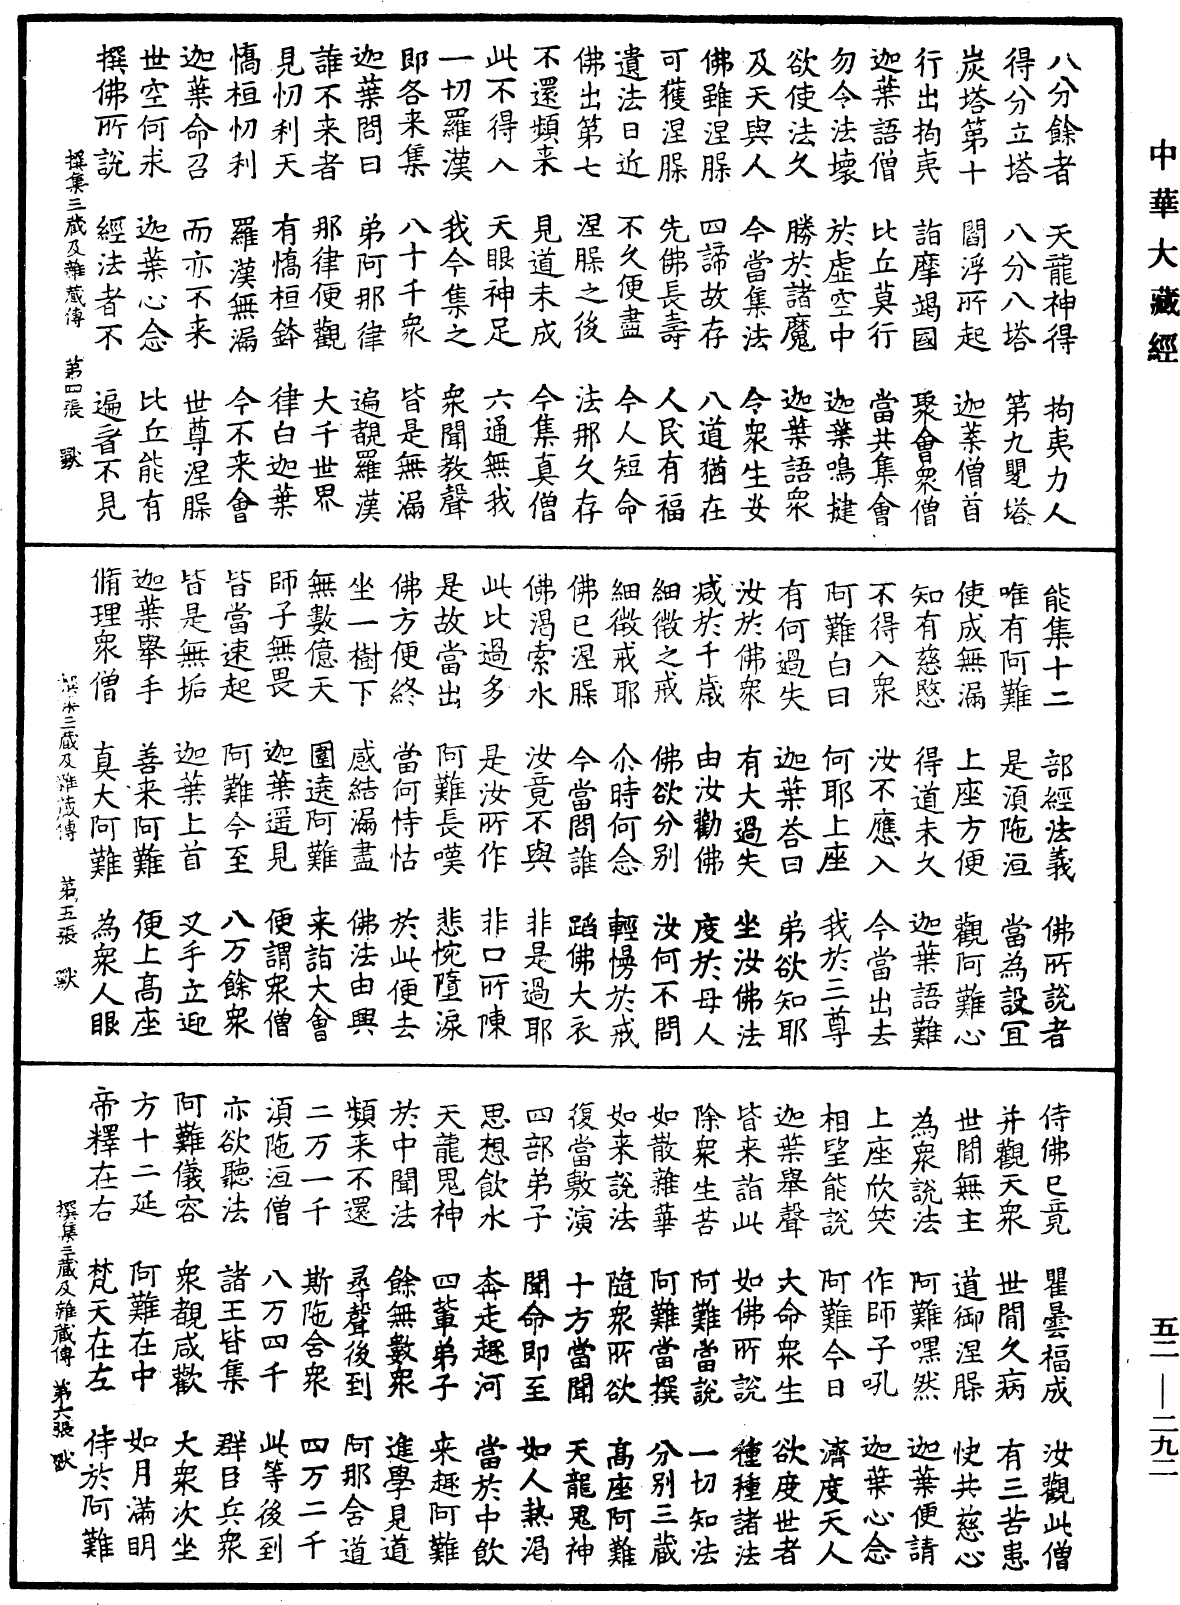 中華大藏經
八分餘者　天龍神得　拘夷力人
得分立塔　八分八塔　第九甖塔
炭塔第十　閻浮所起　迦葉僧首
行出拘夷　詣摩竭國　聚會衆僧
迦葉語僧　比丘莫行　當共集會
勿令法壞　於虛空中　迦葉鳴揵
欲使法久　勝於諸魔　迦葉語衆
及天與人　今當集法　令衆生安
佛雖涅槃　四諦故存　八道猶在
可獲涅槃　先佛長壽　人民有福
遺法日近　不久便盡　今人短命
佛出第七　涅槃之後　法那久存
不還頻来　見道未成　今集真僧
此不得入　天眼神足　六通無我
一切羅漢　我今集之　衆聞教聲
即各来集　八十千衆　皆是無漏
迦葉問曰　弟阿那律　遍覩羅漢
誰不来者　那律便觀　大千世界
見忉利天　有憍桓鉢　律白迦葉
憍桓忉利　羅漢無漏　今不来會
迦葉命召　而亦不来　世尊涅槃
世空何求　迦葉心念　比丘能有
撰佛所說　經法者不　遍看不見
撰集三藏及雜藏傳　第四張　獸
能集十二　部經法義　佛所說者
唯有阿難　是須陁洹　當為設冝
使成無漏　上座方便　觀阿難心
知有慈愍　得道未久　迦葉語難
不得入衆　汝不應入　今當出去
阿難白曰　何耶上座　我於三尊
有何過失　迦葉荅曰　弟欲知耶
汝於佛衆　有大過失　坐汝佛法
減於千歲　由汝勸佛　度於母人
細微之戒　佛欲分別　汝何不問
細微戒耶　尒時何念　輕慢於戒
佛已涅槃　今當問誰　蹈佛大衣
佛渴索水　汝竟不與　非是過耶
此比過多　是汝所作　非口所陳
是故當出　阿難長嘆　悲惋墮淚
佛方便終　當何恃怙　於此便去
坐一樹下　感結漏盡　佛法由興
無數億天　圍遶阿難　来詣大會
師子無畏　迦葉遥見　便謂衆僧
皆當速起　阿難今至　八万餘衆
皆是無垢　迦葉上首　叉手立迎
迦葉舉手　善来阿難　便上髙座
脩理衆僧　真大阿難　為衆人眼
撰集三藏及雜藏傳　第五張　獸
侍佛已竟　瞿曇福成　汝觀此僧
并觀天衆　世間久病　有三苦患
世間無主　道御涅槃　快共慈心
為衆說法　阿難嘿然　迦葉便請
上座欣笑　作師子吼　迦葉心念
相望能說　阿難今日　濟度天人
迦葉舉聲　大命衆生　欲度世者
皆来詣此　如佛所說　種種諸法
除衆生苦　阿難當說　一切知法
如散雜華　阿難當撰　分別三藏
如来說法　隨衆所欲　髙座阿難
復當敷演　十方當聞　天龍鬼神
四部弟子　聞命即至　如人熱渴
思想飲水　奔走趣河　當於中飲
天龍鬼神　四輩弟子　来趣阿難
於中聞法　餘無數衆　進學見道
頻来不還　尋聲後到　阿那舍道
二万一千　斯陁舍衆　四万二千
須陁洹僧　八万四千　此等後到
亦欲聽法　諸王皆集　群臣兵衆
阿難儀容　衆覩咸歡　大衆次坐
方十二延　阿難在中　如月滿明
帝釋在右　梵天在左　侍於阿難
撰集三藏及雜藏傳　第六張　獸
五二—二九二